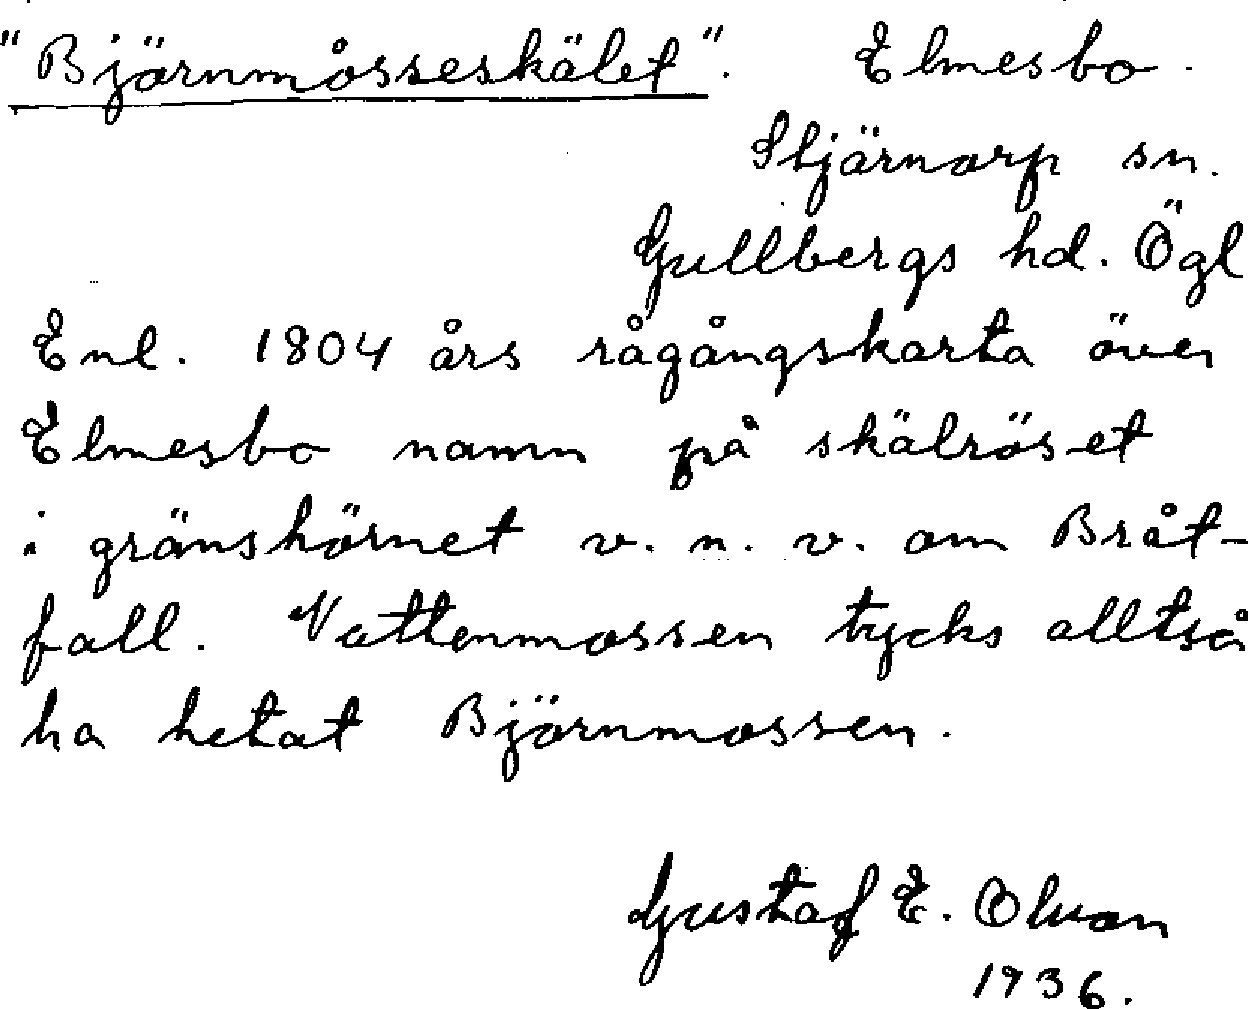 "Björnmåsseskälet". Elmesbo.
Stjärnorp sn.
Gullbergs hd. Ögl
Enl. 1804 års rågångskarta över
Elmesbo namn på skälröset
i gränshörnet v. n. v. om Bråt-
fall. Vattenmossen tycks alltså
ha hetat Björnmossen.
Gustaf E. Olsson
1936.